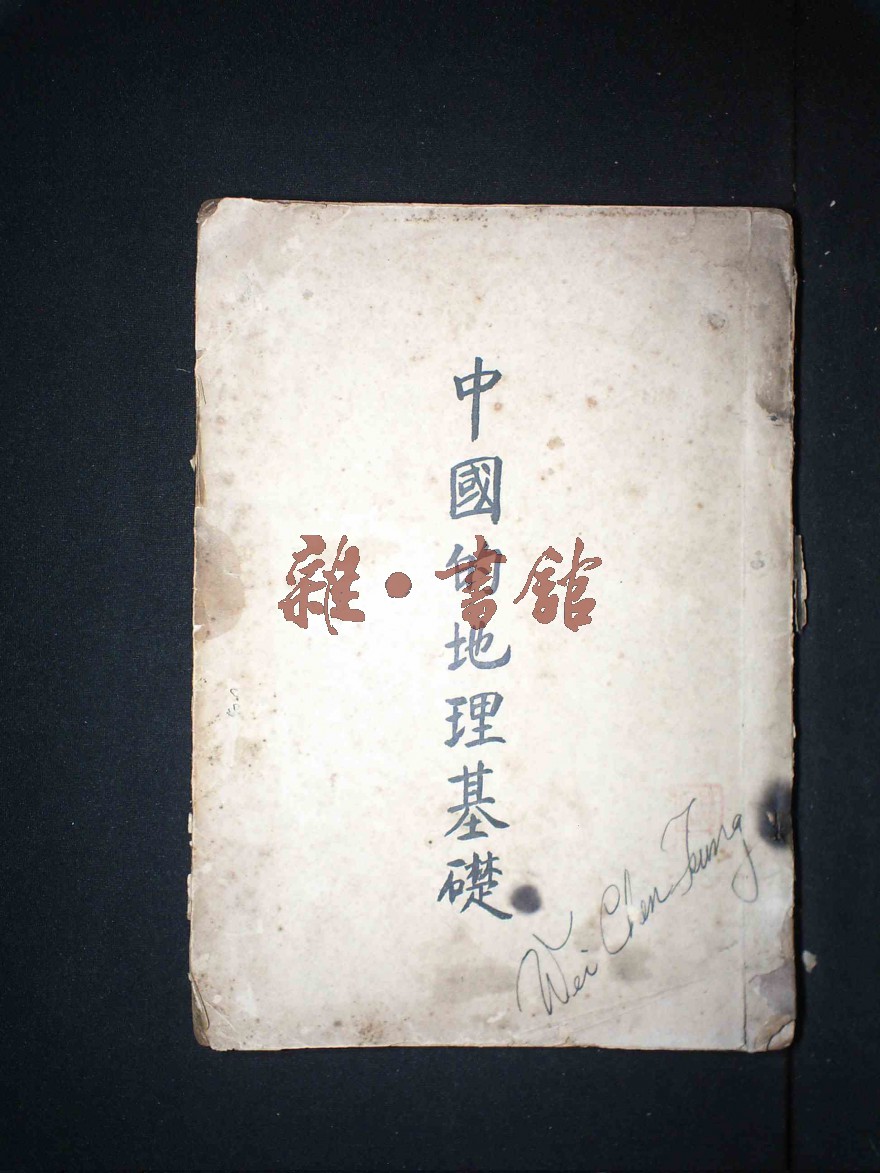 中國的地理基礎
雜·書館
Wei Chen Tsung